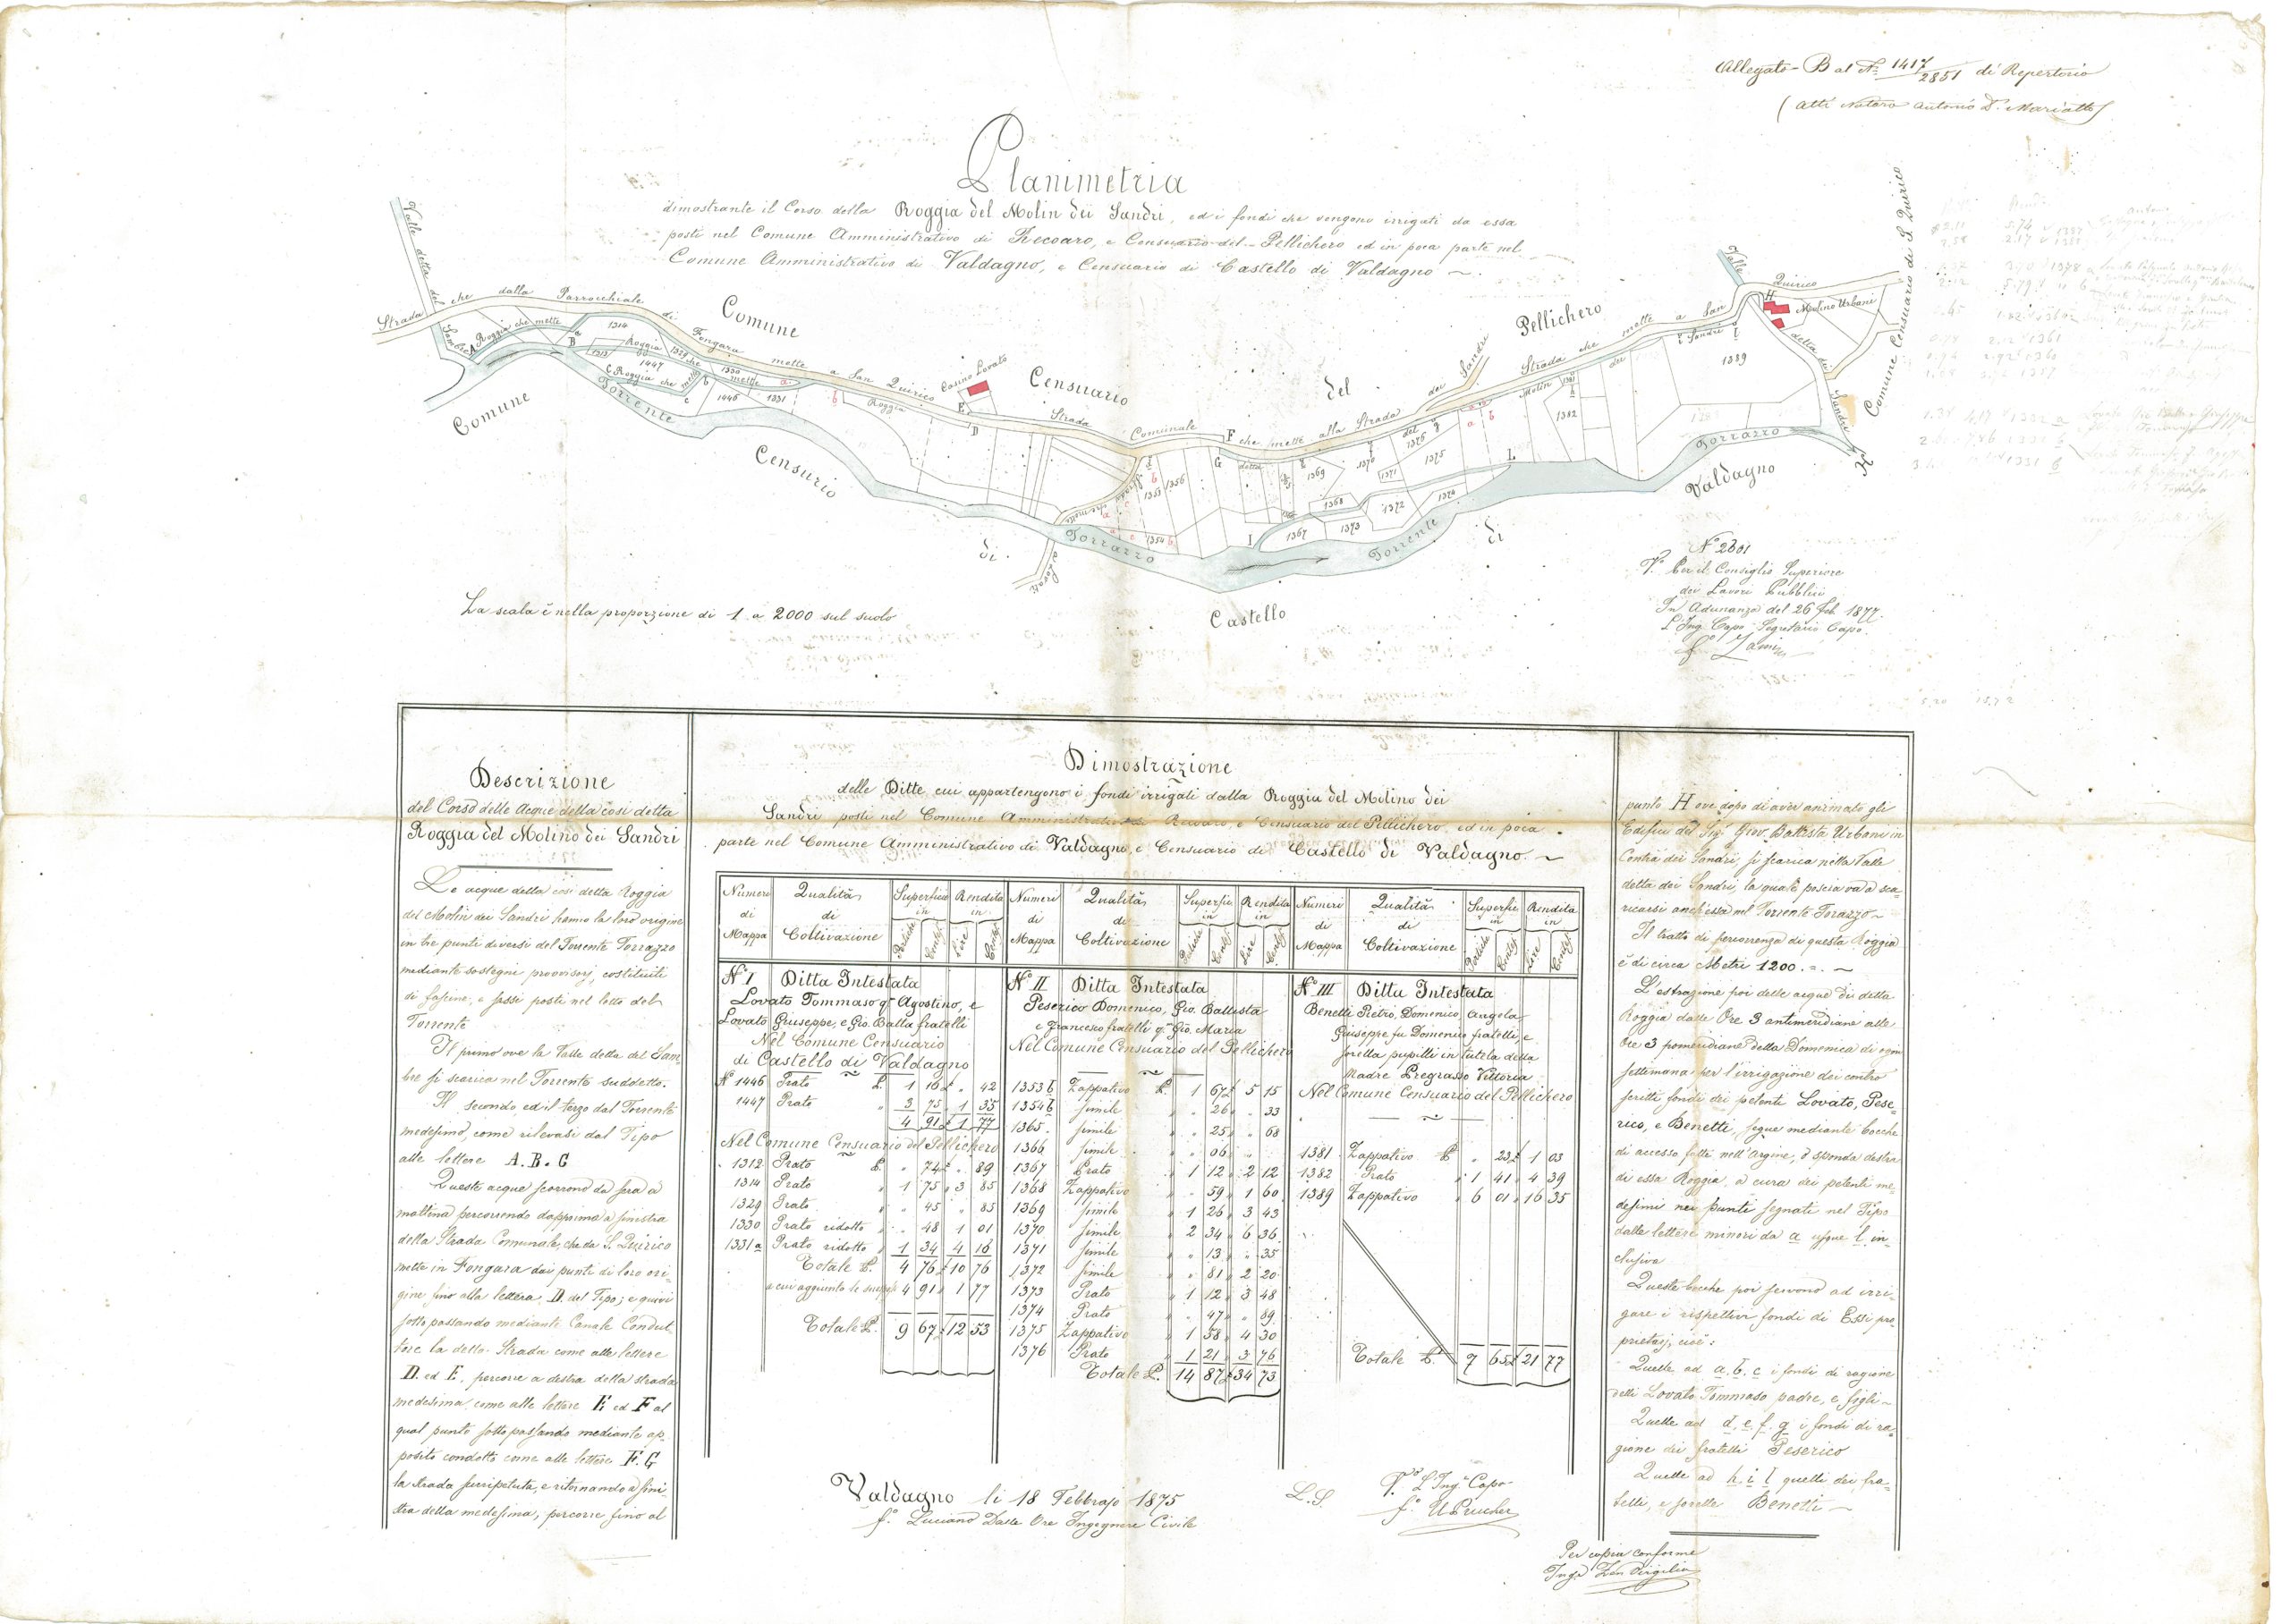 Allegato B al N.º 1417/2851 di Repertorio
(Atti Notaro Antonio D.r Mariatto)
Planimetria
dimostrante il Corso della Roggia del Molin dei Sandri, ed i fondi che vengono irrigati da essa
posti nel Comune Amministrativo di Recoaro, e Censuario del Pellichero ed in poca parte nel
Comune Amministrativo di Valdagno, e Censuario di Castello di Valdagno ~.
Valle detta del
Sambre
Strada che dalla Parrocchiale di Fongara mette a San Quirico
Comune Censuario del Pellichero
Casino Lovato
Strada Comunale che mette alla Strada dei Sandri
Strada che mette a San Quirico
Valle
detta dei Sandri
Molino Urbani
Comune Censuario di S. Quirico
A Roggia che mette
B
C Roggia che mette
Roggia
che mette
D
E
F
G
H
I
L
K
a
b
c
1314
1313
1447
1329
1330
1446
1331
Roggia
detta
del
Molin
dei
Sandri
1353
1356
1354
1367
1368
1369
1370
1371
1372
1373
1374
1375
1376
1381
1382
1389
Strada che mette
ai Lovati
Torrente
Torrazzo
Torrente
Torrazzo
Comune Censurio di Castello di Valdagno
La scala è nella proporzione di 1 a 2000 sul suolo
Nº 2601
Vº Per il Consiglio Superiore
dei Lavori Pubblici
In Adunanza del 26 Feb 1877.
L'Ing. Capo Segretario Capo.
Descrizione
del Corso delle Acque della così detta
Roggia del Molino dei Sandri
Le acque della così detta Roggia
del Molin dei Sandri hanno la loro origine
in tre punti diversi del Torrente Torrazzo
mediante sostegni provvisorj, costituiti
di fassine, e sassi posti nel letto del
Torrente
Il primo ove la Valle detta del Sam-
bre si scarica nel Torrente suddetto.
Il secondo, ed il terzo dal Torrente
medesimo, come rilevasi dal Tipo
alle lettere A. B. C
Queste acque scorrono da sera a
mattina percorrendo dapprima a sinistra
della Strada Comunale, che da S. Quirico
mette in Fongara dai punti di loro ori-
gine fino alla lettera D. del Tipo; e quivi
sotto passando mediante Canale Condut-
tore la detta Strada come alle lettere
D. ed E. percorre a destra della strada
medesima, come alle lettere E ed F al
qual punto sotto passando mediante ap-
posito condotto come alle lettere F. G
la strada surripetuta, e ritornando a sini-
stra della medesima, percorre fino al
Dimostrazione
delle Ditte, cui appartengono i fondi irrigati dalla Roggia del Molino dei
Sandri posti nel Comune Amministrativo di Recoaro, e Censuario del Pellichero, ed in poca
parte nel Comune Amministrativo di Valdagno, e Censuario di Castello di Valdagno. ~
Numeri di Mappa Qualità di Coltivazione Superficie in Pertiche Centesi Rendita in Lire Centesi
Numeri di Mappa Qualità di Coltivazione Superficie in Pertiche Centesi Rendita in Lire Centesi
Numeri di Mappa Qualità di Coltivazione Superficie in Pertiche Centesi Rendita in Lire Centesi
Nº I Ditta Intestata
Lovato Tommaso q.m Agostino, e
Lovato Giuseppe, e Gio. Batta fratelli
Nel Comune Censuario
di Castello di Valdagno
Nº 1446 Prato P. 1 16 £ " 42
1447 Prato " 3 75 " 1 35
4 91 £ 1 77
Nel Comune Censuario del Pellichero
1312 Prato P. " 74 £ " 89
1314 Prato " 1 75 " 3 85
1329 Prato " " 45 " " 85
1330 Prato ridotto " " 48 " 1 01
1331 a Prato ridotto " 1 34 " 4 16
Totale P. 4 76 £ 10 76
a cui aggiunto le 4 91 " 1 77
Totale P. 9 67 £ 12 53
Nº II Ditta Intestata
Peserico Domenico, Gio. Battista
e Francesco fratelli q.m Gio. Maria
Nel Comune Censuario del Pellichero
1353 b Zappativo P. 1 67 £ 5 15
1354 b simile " " 26 " " 33
1365 simile " " 25 " " 68
1366 simile " " 06 " "
1367 Prato " 1 12 " 2 12
1368 Zappativo " " 59 " 1 60
1369 simile " 1 26 " 3 43
1370 simile " 2 34 " 6 36
1371 simile " " 13 " " 35
1372 simile " " 81 " 2 20
1373 Prato " 1 12 " 3 48
1374 Prato " " 47 " " 89
1375 Zappativo " 1 58 " 4 30
1376 Prato " 1 21 " 3 76
Totale P. 14 87 £ 34 73
Nº III Ditta Intestata
Benetti Pietro, Domenico, Angela,
Giuseppe fu Domenico fratelli, e
sorella pupilli in tutela della
Madre Pregrasso Vittoria
Nel Comune Censuario del Pellichero
1381 Zappativo P. " 23 £ 1 03
1382 Prato " 1 41 " 4 39
1389 Zappativo " 6 01 " 16 35
Totale P. 7 65 £ 21 77
punto H ove dopo di aver animato gli
Edifici del Sig.r Giov. Battista Urbani in
Contrà dei Sandri, si scarica nella Valle
detta dei Sandri, la quale poscia va a sca-
ricarsi anch'essa nel Torrente Torazzo ~
Il tratto di percorrenza di questa Roggia
è di circa Metri 1200. = . ~
L'estrazione poi delle acque di detta
Roggia dalle Ore 3 antimeridiane alle
Ore 3 pomeridiane della Domenica di ogni
settimana per l'irrigazione dei contro
scritti fondi dei petenti Lovato, Pese-
rico, e Benetti, segue mediante bocche
di accesso fatte nell'Argine, o sponda destra
di essa Roggia, a cura dei petenti me-
desimi nei punti segnati nel Tipo
dalle lettere minori da a usque l in-
clusiva
Queste bocche poi servono ad irri-
gare i rispettivi fondi di Essi pro-
prietarj, cioè:
Quelle ad a. b. c i fondi di ragione
detti Lovato Tommaso padre, e figli ~
Quelle ad d. e. f. g i fondi di ra-
gione dei fratelli Peserico
Quelle ad h. i l quelli dei fra-
telli, e sorelle Benetti ~
Valdagno li 18 Febbrajo 1875
fº Luciano Dalle Ore Ingegnere Civile
L. S.
Vº L'Ing. Capo
Per copia conforme
Ing.e Zen Virgilio